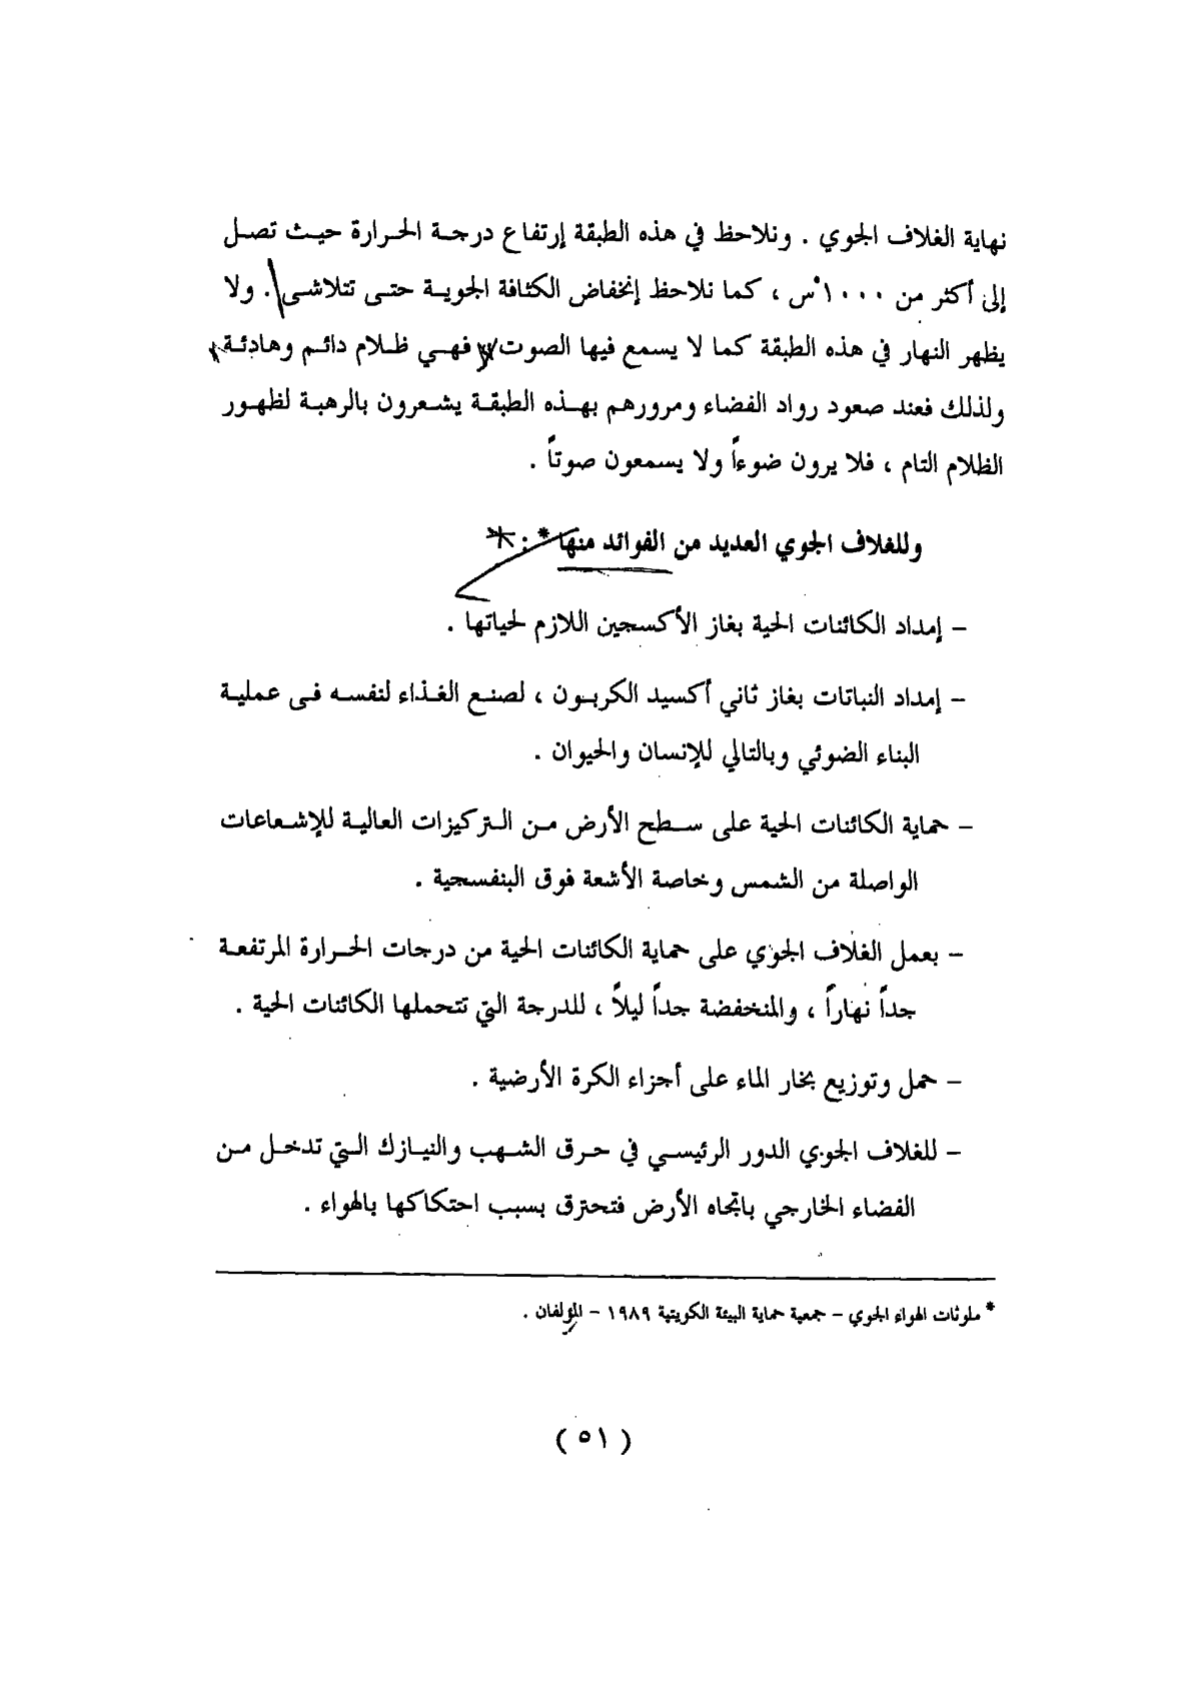 نهاية الغلاف الجوي . ونلاحظ في هذه الطبقة إرتفاع درجة الحرارة حيث تصل
إلى أكثر من ١٠٠٠°س ، كما نلاحظ إنخفاض الكثافة الجوية حتى تتلاشى . ولا
يظهر النهار في هذه الطبقة كما لا يسمع فيها الصوت فهي ظلام دائم وهادئة
ولذلك فعند صعود رواد الفضاء ومرورهم بهذه الطبقة يشعرون بالرهبة لظهور
الظلام التام ، فلا يرون ضوءاً ولا يسمعون صوتاً .
وللغلاف الجوي العديد من الفوائد منها * :
– إمداد الكائنات الحية بغاز الأكسجين اللازم لحياتها .
– إمداد النباتات بغاز ثاني أكسيد الكربون ، لصنع الغذاء لنفسه فى عملية
البناء الضوئي وبالتالي للإنسان والحيوان .
– حماية الكائنات الحية على سطح الأرض من التركيزات العالية للإشعاعات
الواصلة من الشمس وخاصة الأشعة فوق البنفسجية .
– بعمل الغلاف الجوي على حماية الكائنات الحية من درجات الحرارة المرتفعة
جداً نهاراً ، والمنخفضة جداً ليلاً ، للدرجة التي تتحملها الكائنات الحية .
– حمل وتوزيع بخار الماء على أجزاء الكرة الأرضية .
– للغلاف الجوي الدور الرئيسي في حرق الشهب والنيازك التي تدخل من
الفضاء الخارجي باتجاه الأرض فتحترق بسبب احتكاكها بالهواء .
* ملوثات الهواء الجوي – جمعية حماية البيئة الكويتية ١٩٨٩ – المؤلفان .
( ٥١ )